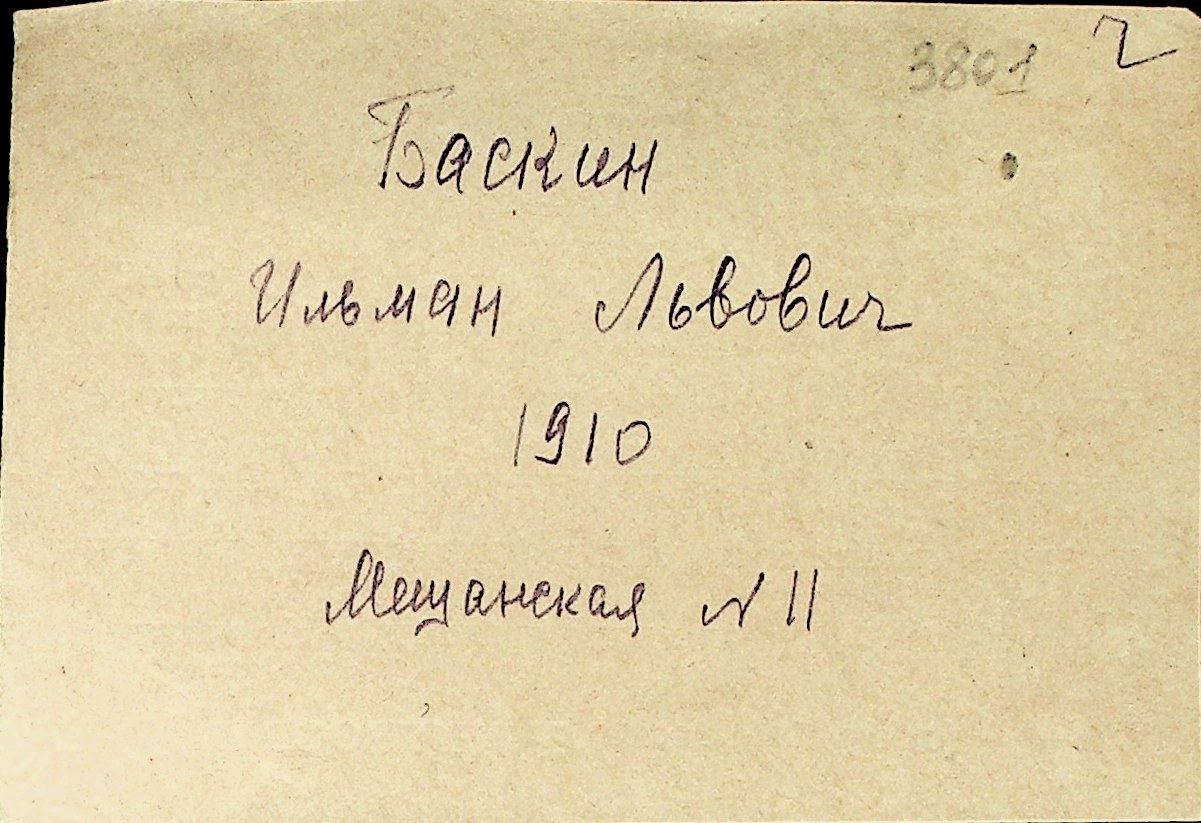 3801 ч
Баскин
Ильман Львович
1910
Мещанская N 11